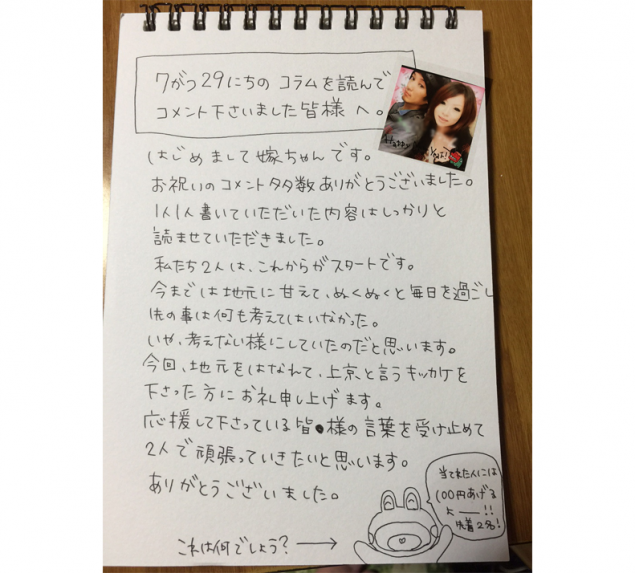 7がつ29にちの コラムを読んで
コメント下さいました皆様 へ。
はじめまして嫁ちゃんです。
お祝いのコメント多数ありがとうございました。
1人1人書いていただいた内容はしっかりと
読ませていただきました。
私たち2人は、これからがスタートです。
今までは地元に甘えて、ぬくぬくと毎日を過ごし
先の事は何も考えてはいなかった。
いや、考えない様にしていたのだと思います。
今回、地元をはなれて、上京と言うキッカケを
下さった方にお礼申し上げます。
応援して下さっている皆様の言葉を受け止めて
2人で頑張っていきたいと思います。
ありがとうございました。
当てれた人には
100円あげる
よー!!
先着2名!
これは何でしょう? →